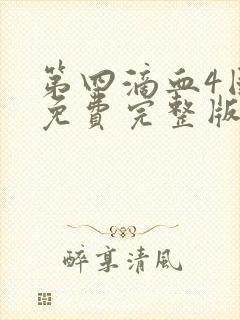 第四滴血4国
免費完整版
醉享清風